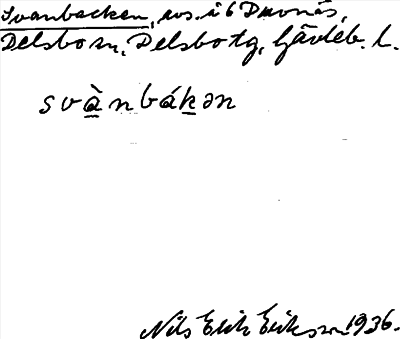 Svanbacken, avs. å 6 Duvnäs,
Delsbo sn, Delsbo tg, Gävleb. l.
svànbákən
Nils Erik Eriksson 1936.